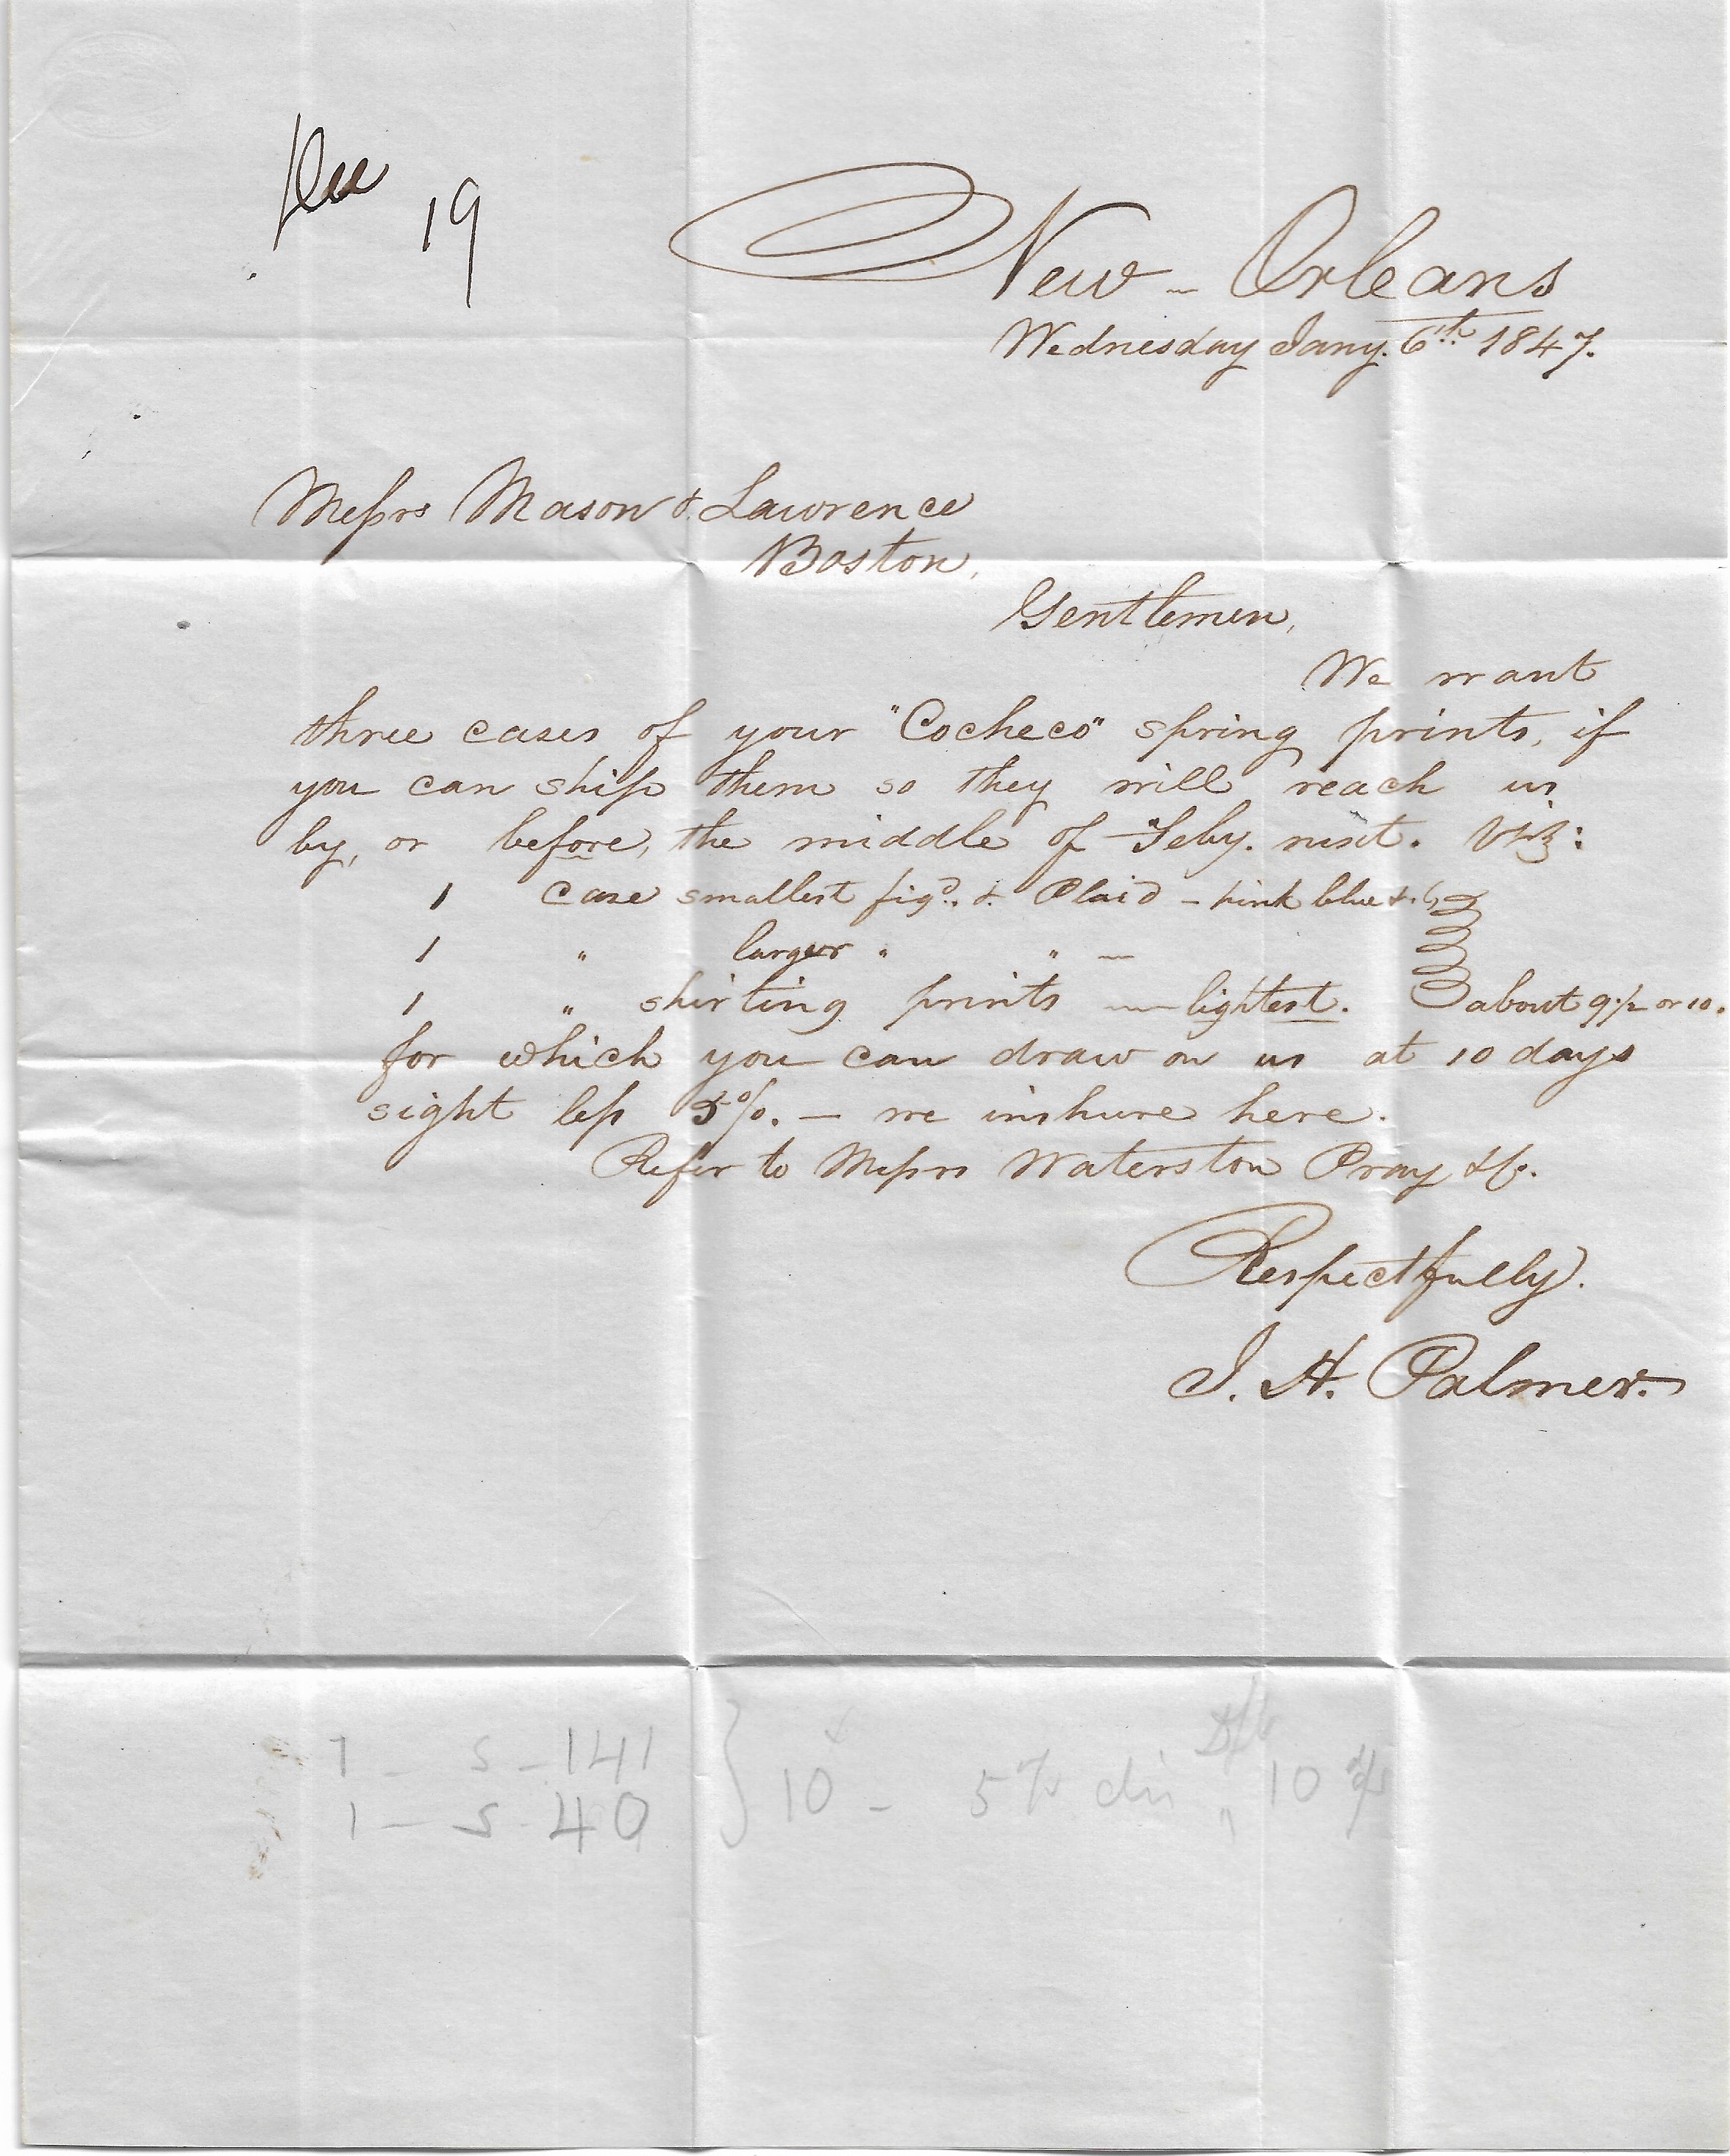 19
New - Orleans
Wednesday Jany. 6th 1847.
Messrs Mason & Lawrence
Boston,
Gentlemen,
We want
three cases of your "Cocheco" spring prints, if
you can ship them so they will reach us
by, or before, the middle of Feby. next. Viz:
1 case smallest figd. & Plaid - pink blue &.
1 " larger " " —
1 " shirting prints — lightest. about 9½ or 10.
for which you can draw on us at 10 days
sight less 5%. — we inshure here.
Refer to Messrs Waterston Pray & Co.
Respectfully.
J. H. Palmer.
1 - S - 141
1 - S - 40 } 10 - 5% dis 10